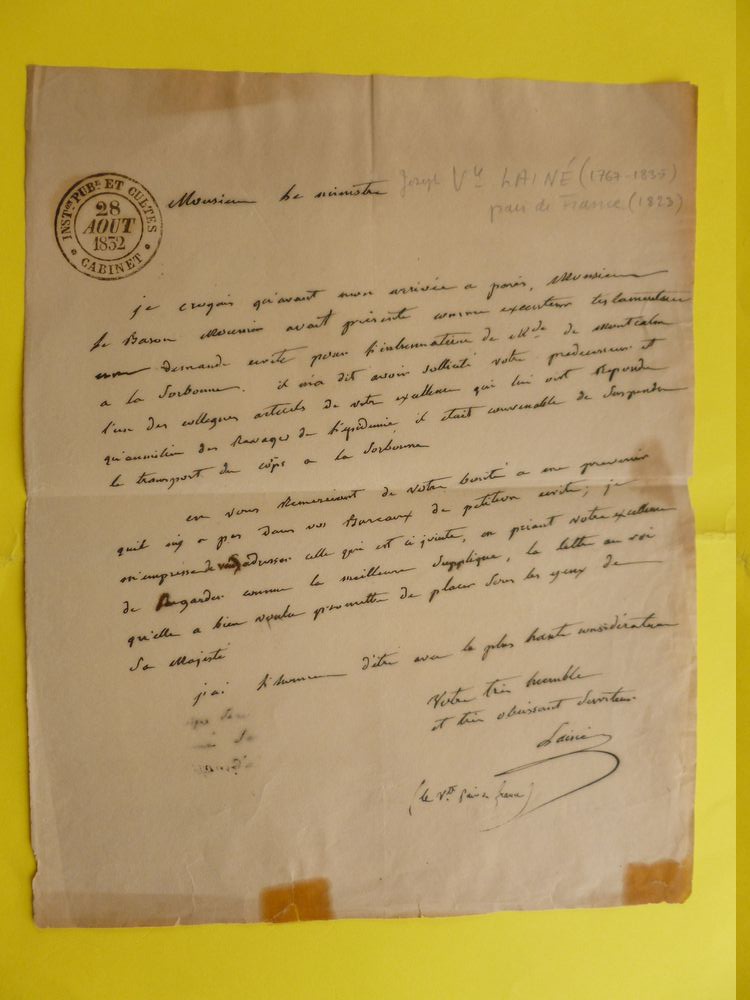 INST.on PUB.e ET CULTES
28
AOUT
1832
* CABINET *
Monsieur le ministre
Joseph Vte LAINÉ (1767-1835)
pair de France (1823)
je croyais qu'avant mon arrivée a paris, Monsieur
le Baron Mounier avait présenté comme executeur testamentaire
une demande ecrite pour l'inhumation de Mde de Montcalm
a la Sorbonne. il m'a dit avoir sollicité votre predecesseur et
l'un des collegues actuels de votre excellence qui lui ont repondu
qu'au milieu des Ravages de l'epidemie il etait convenable de suspendre
le transport du corps a la Sorbonne
en vous Remerciant de votre bonté a me prevenir
quil ny a pas dans vos Bureaux de petition ecrite, je
m'empresse de vous adresser celle qui est ci jointe, en priant votre excellence
de Regarder comme la meilleure supplique, la lettre au roi
qu'elle a bien voulu promettre de placer sous les yeux de
Sa Majesté
j'ai l'honneur d'être avec la plus haute considération
Votre très humble
et très obeissant serviteur
Lainé
(le Vte pair de france)